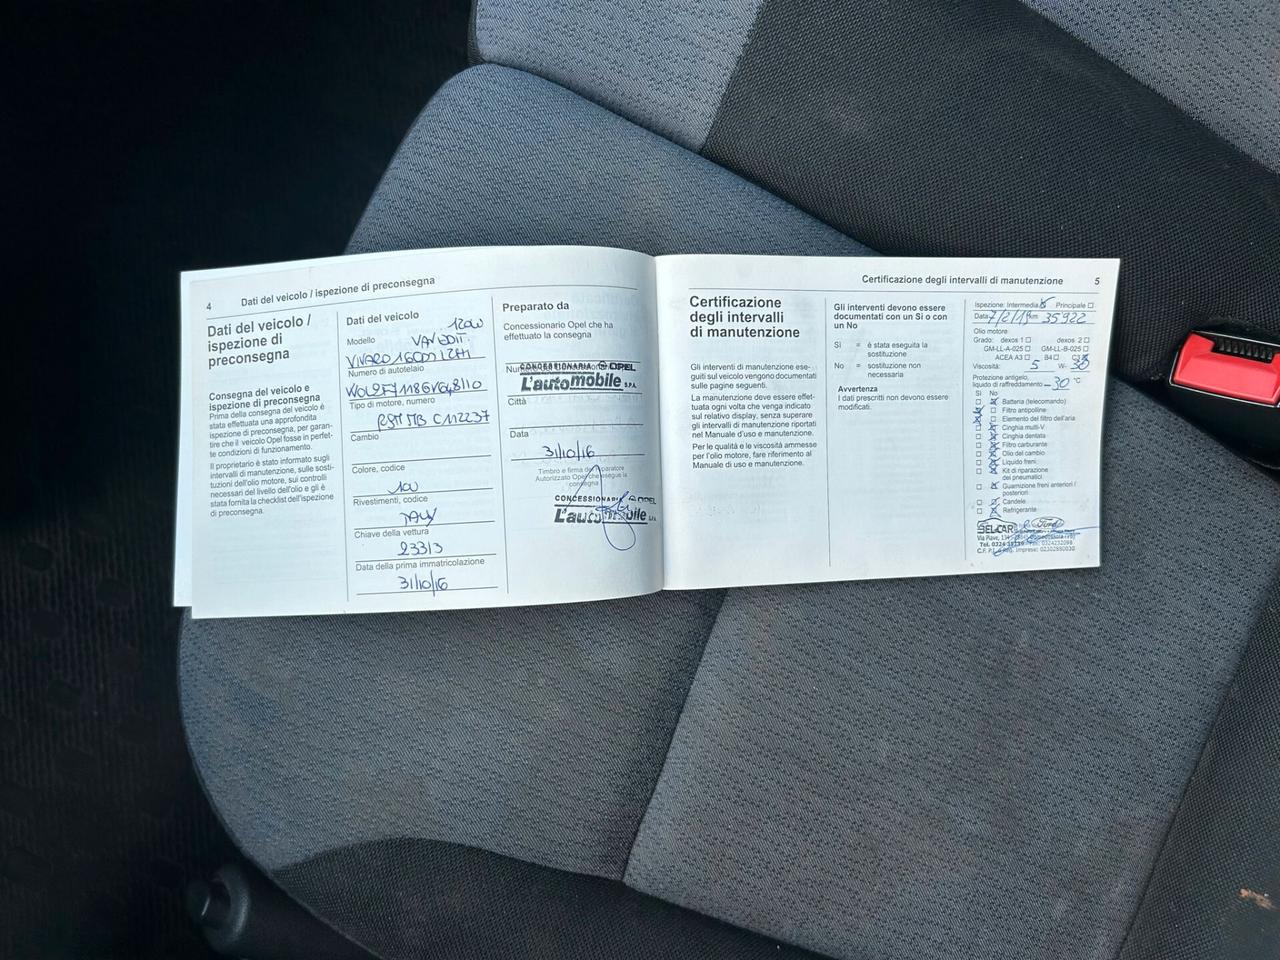 4 Dati del veicolo / ispezione di preconsegna
Dati del veicolo /
ispezione di
preconsegna
Consegna del veicolo e
ispezione di preconsegna
Prima della consegna del veicolo è
stata effettuata una approfondita
ispezione di preconsegna, per garan-
tire che il veicolo Opel fosse in perfet-
te condizioni di funzionamento.
Il proprietario è stato informato sugli
intervalli di manutenzione, sulle sosti-
tuzioni dell'olio motore, sui controlli
necessari del livello dell'olio e gli è
stata fornita la checklist dell'ispezione
di preconsegna.
Dati del veicolo
Modello
VIVARO
Numero di autotelaio
Tipo di motore, numero
Cambio
Colore, codice
Rivestimenti, codice
Chiave della vettura
23313
Data della prima immatricolazione
31/10/16
Preparato da
Concessionario Opel che ha
effettuato la consegna
CONCESSIONARIA OPEL
L'automobile S.P.A.
Città
Data
31/10/16
Timbro e firma del riparatore
Autorizzato Opel che esegue la
consegna
CONCESSIONARIA OPEL
L'automobile
Certificazione degli intervalli di manutenzione 5
Certificazione
degli intervalli
di manutenzione
Gli intervalli di manutenzione ese-
guiti sul veicolo vengono documentati
sulle pagine seguenti.
La manutenzione deve essere effet-
tuata ogni volta che venga indicato
sul relativo display, senza superare
gli intervalli di manutenzione riportati
nel Manuale d'uso e manutenzione.
Per le qualità e le viscosità ammesse
per l'olio motore, fare riferimento al
Manuale di uso e manutenzione.
Gli interventi devono essere
documentati con un Sì o con
un No
Sì = è stata eseguita la
sostituzione
No = sostituzione non
necessaria
Avvertenza
I dati prescritti non devono essere
modificati.
Ispezione: Intermedia Principale
Data 7/2/19 km 35922
Olio motore
Grado: dexos 1 dexos 2
GM-LL-A-025 GM-LL-B-025
ACEA A3 B4 C3
Viscosità: 5 W- 30
Protezione antigelo,
liquido di raffreddamento -30 °C
Sì No
Batteria (telecomando)
Filtro antipolline
Elemento del filtro dell'aria
Cinghia multi-V
Cinghia dentata
Filtro carburante
Olio del cambio
Liquido freni
Kit di riparazione
dei pneumatici
Guarnizione freni anteriori /
posteriori
Candele
Refrigerante
SELCAR Ford